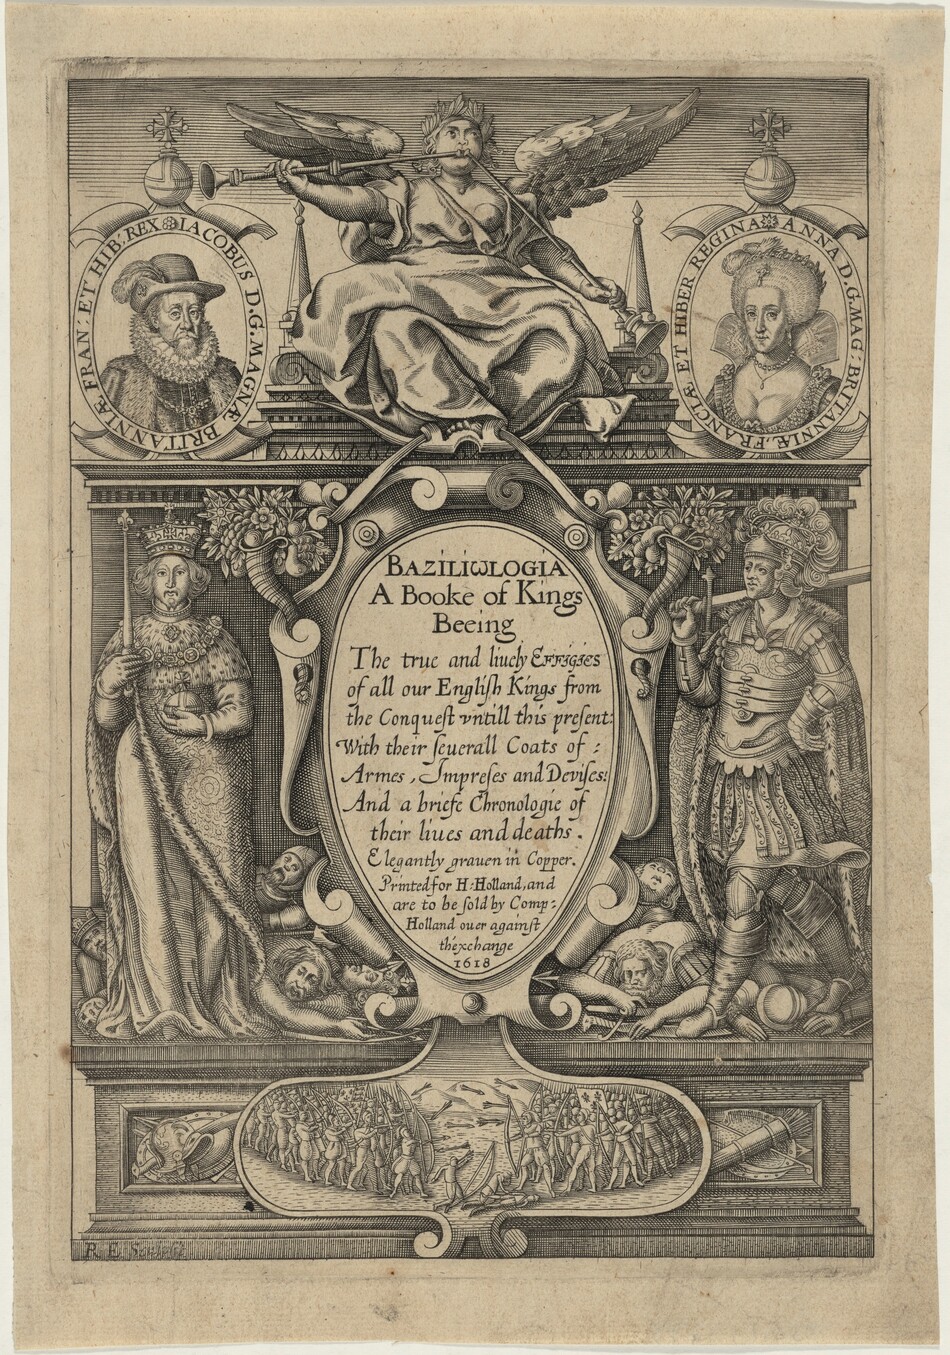 IACOBUS D.G. MAGNÆ BRITANNIÆ FRAN: ET HIB: REX
ANNA D.G. MAG: BRITANNIÆ, FRANCIÆ ET HIBER REGINA
BAZILIωLOGIA
A Booke of Kings
Beeing
The true and liuely Effigies
of all our Engliſh Kings from
the Conqueſt vntill this preſent:
With their ſeuerall Coats of :
Armes, Impreſes and Deviſes:
And a briefe Chronologie of
their liues and deaths.
Elegantly grauen in Copper.
Printed for H: Holland, and
are to be ſold by Comp:
Holland ouer againſt
thexchange
1618
R. E.